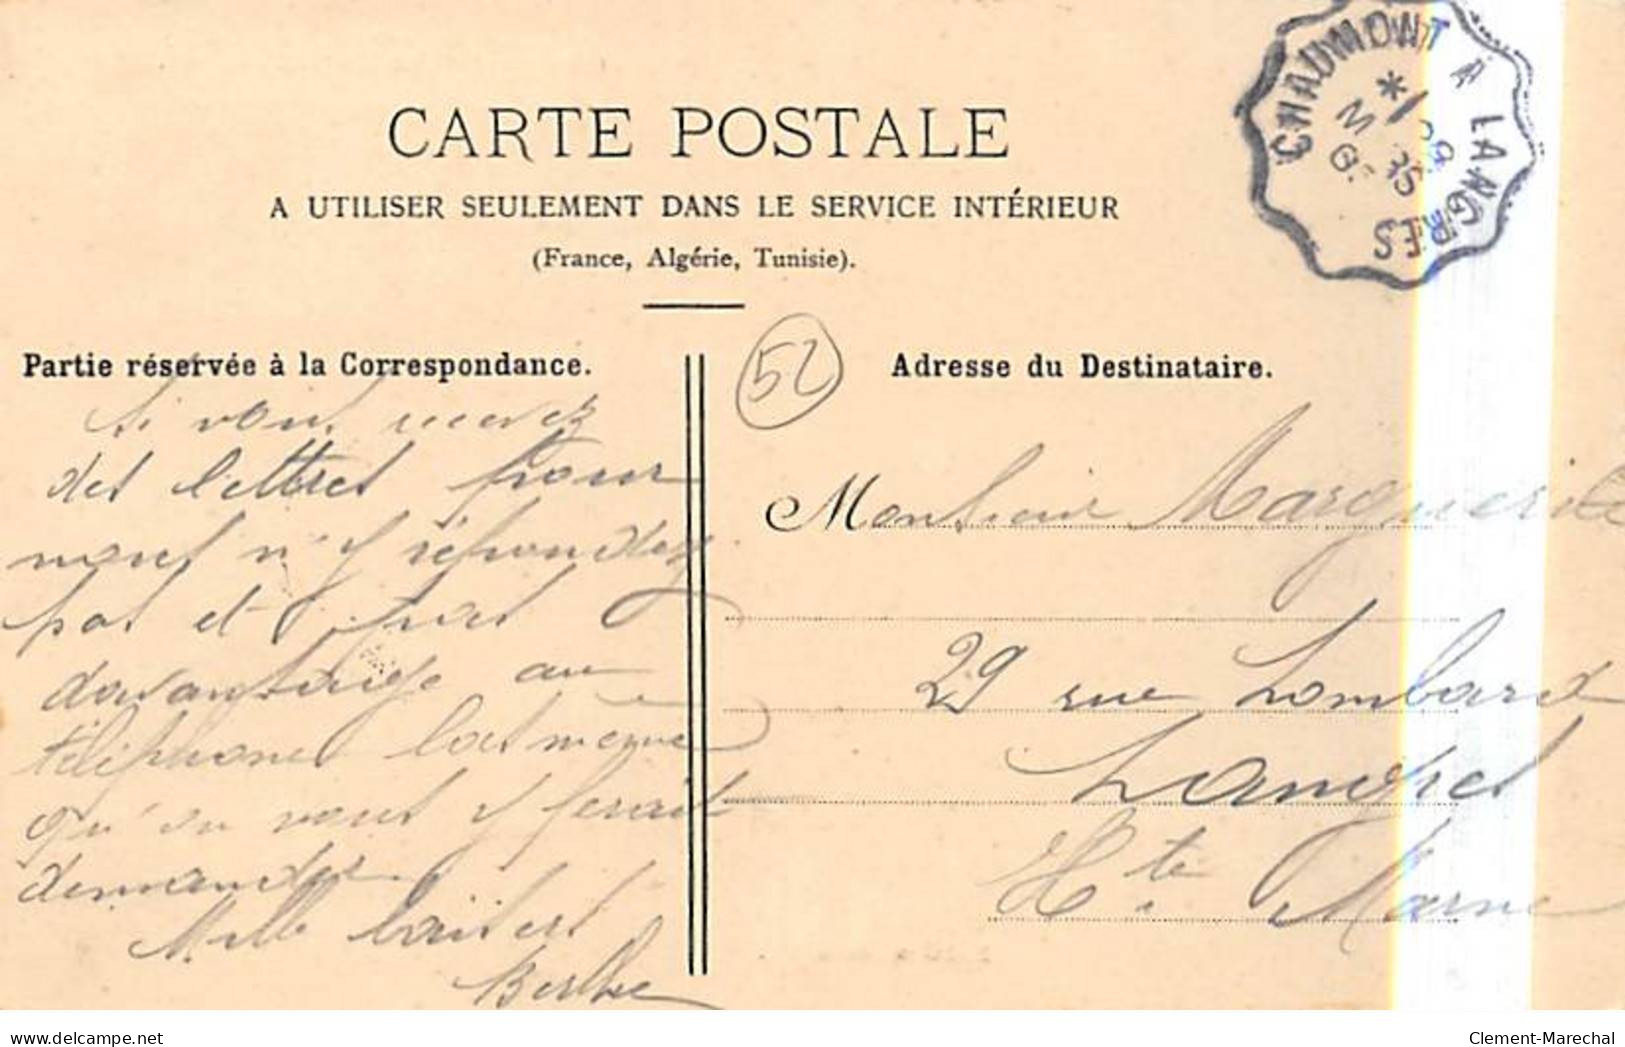 CARTE POSTALE
A UTILISER SEULEMENT DANS LE SERVICE INTÉRIEUR
(France, Algérie, Tunisie).
CHAUMONT A LANGRES
Partie réservée à la Correspondance.
52
Adresse du Destinataire.
si vous recevez
des lettres pour
nous n'y répondez
pas et pas
davantage au
téléphone lors même
qu'on vous y ferait
demander
Mille baisers
Berthe
Monsieur Marguerite
29 rue Lombard
Langres
Hte Marne
www.delcampe.net
Clement-Marechal